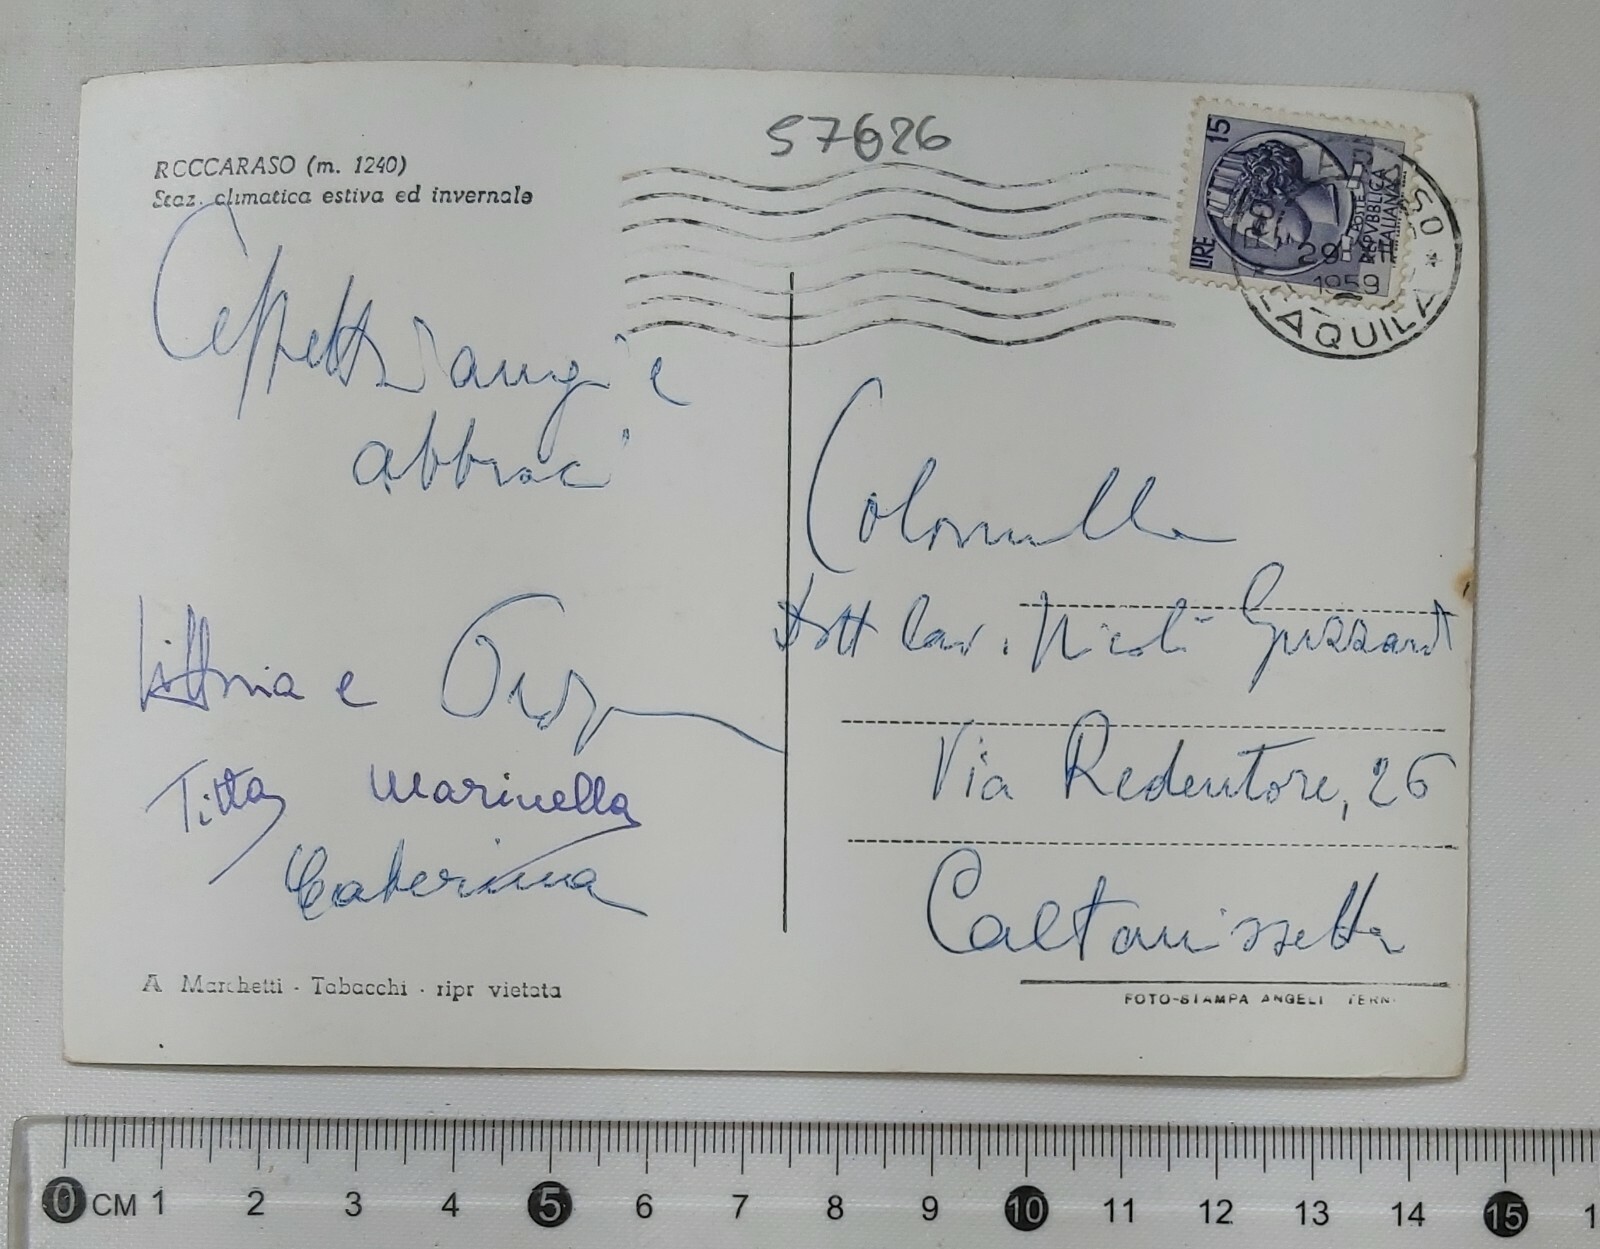 57626
ROCCARASO (m. 1240)
Staz. climatica estiva ed invernale
15
LIRE
POSTE
REPVBBLICA
ITALIANA
29
1959
L'AQUILA
auguri e
abbracci
Vittoria e
Titta Marinella
Caterina
A Marchetti - Tabacchi - ripr vietata
Colonnello
Dott Cav. Nicolò Guzzardi
Via Redentore, 26
Caltanissetta
FOTO-STAMPA ANGELI TERNI
0 CM 1 2 3 4 5 6 7 8 9 10 11 12 13 14 15